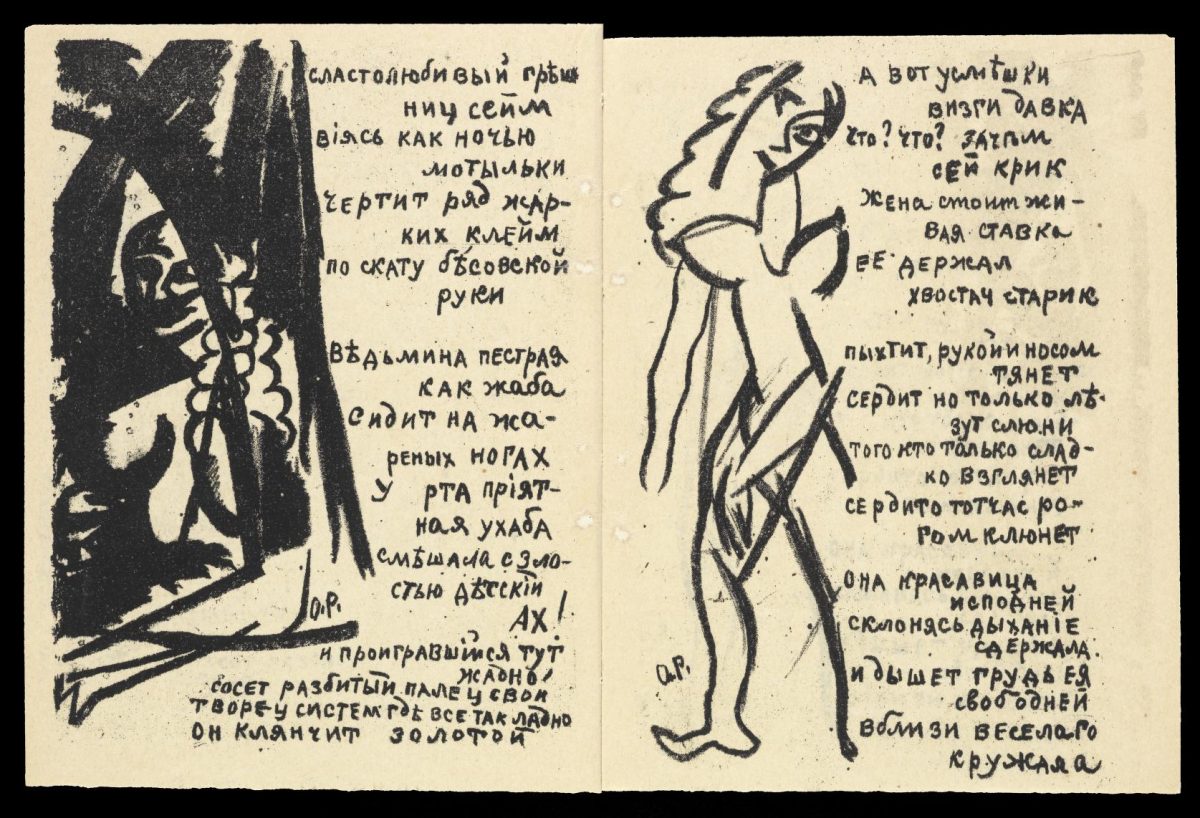 сластолюбивый грѣш
ниц сейм
віясь как ночью
мотыльки
чертит ряд жар-
ких клейм
по скату бѣсовской
руки
вѣдьмина пестрая
как жаба
сидит на жа-
реных ногах
у рта пріят-
ная ухаба
смѣшала с зло-
стью дѣтскій
ах!
O.Р.
и проигравшійся тут
жадно
сосет разбитый палец свой
творец систем гдѣ все так ладно
он клянчит золотой
А вот усмѣшки
визги давка
что? что? зачѣм
сей крик
жена стоит жи-
вая ставка
ее держал
хвостач старик
пыхтит, рукой и носом
тянет
сердит но только лѣ-
зут слюни
того кто только слад-
ко взглянет
сердито тотчас ро-
гом клюнет
она красавица
исподней
склонясь дыханіе
сдержала.
и дышет грудь ея
свободней
вблизи веселаго
кружала
O.Р.